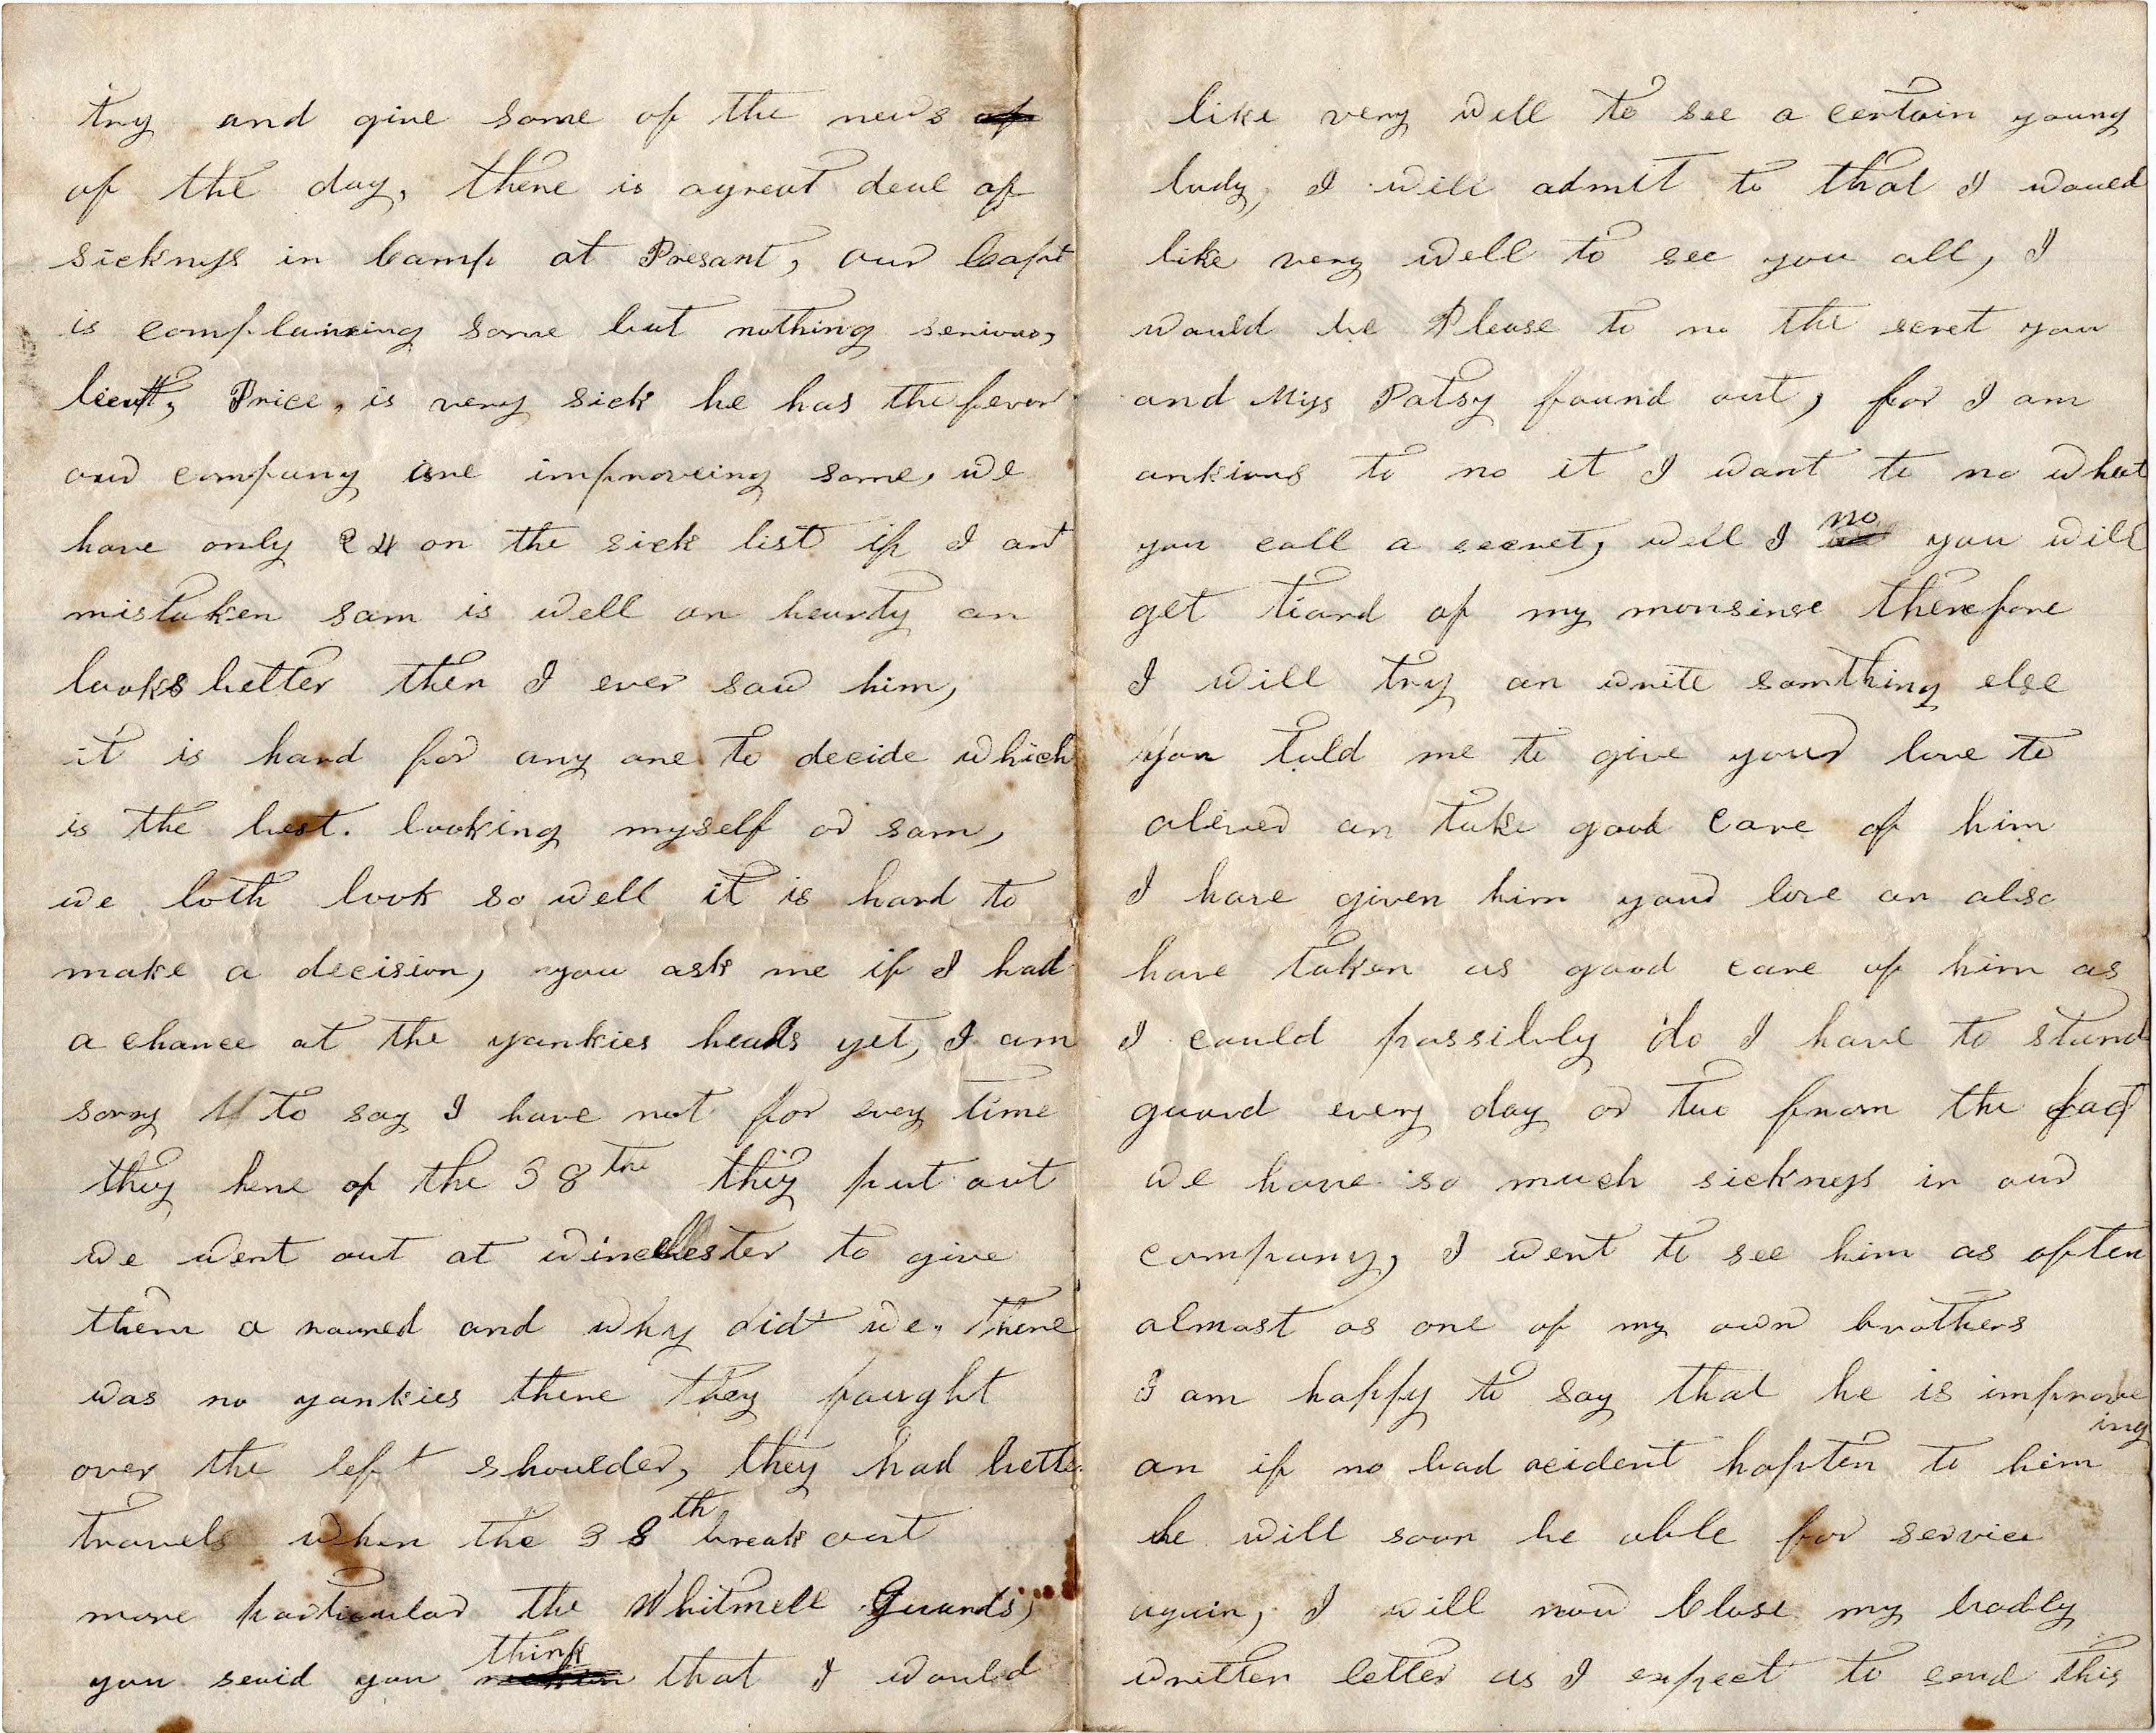 try and give some of the news of
of the day, there is agreat deal of
sickness in Camp at Presant, our Capt
is complaining some but nothing serious,
lieut, Price, is very sick he has the fever
our company are improveing some, we
have only 24 on the sick list if I ant
mistaken sam is well an hearty an
looks better then I ever saw him,
it is hard for any one to decide which
is the best. looking myself or sam,
we both look so well it is hard to
make a decision, you ask me if I had
a chance at the yankies heads yet, I am
sorry to say I have not for evey time
they here of the 38th they put out
we went out at winchester to give
them a round and why didt we. There
was no yankies there They faught
over the left shoulder, they had bette
travels when the 38th break out
more particular the Whitmell Guards,
you said you think that I would
like very well to see a certain young
lady, I will admit to that I would
like very well to see you all, I
would be Please to no the seret you
and Miss Patsy found out, for I am
ankious to no it I want to no what
you call a secret, well I no you will
get tiard of my monsinse therefore
I will try an write somthing else
You told me to give your love to
oliver an take good Care of him
I have given him your love an also
have taken as good care of him as
I could possibly do I have to stand
guard every day or two from the fact
we have so much sickness in our
company, I went to see him as often
almost as one of my own brothers
I am happy to say that he is improveing
an if no bad acident hapten to him
he will soon be able for service
again, I will now Close my badly
written letter as I expect to send this